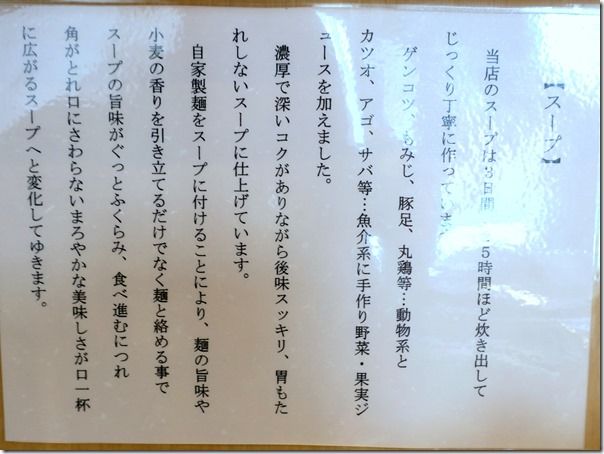 【スープ】
当店のスープは3日間 5時間ほど炊き出して
じっくり丁寧に作ってい
ゲンコツ、もみじ、豚足、丸鶏等…動物系と
カツオ、アゴ、サバ等…魚介系に手作り野菜・果実ジ
ュースを加えました。
濃厚で深いコクがありながら後味スッキリ、胃もた
れしないスープに仕上げています。
自家製麺をスープに付けることにより、麺の旨味や
小麦の香りを引き立てるだけでなく麺と絡める事で
スープの旨味がぐっとふくらみ、食べ進むにつれ
角がとれ口にさわらないまろやかな美味しさが口一杯
に広がるスープへと変化してゆきます。